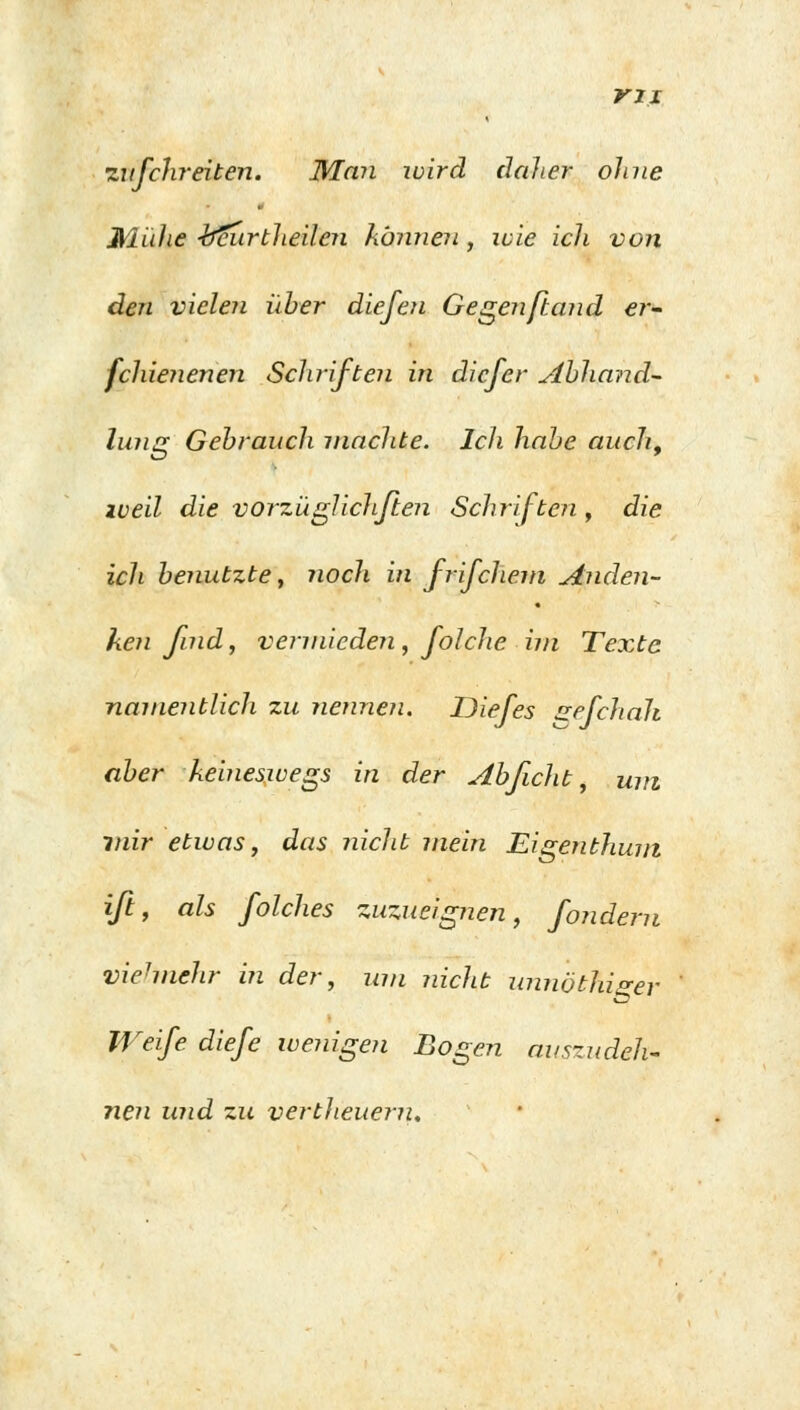 VII
zuſchreiten. Man wird daher ohne
Mühe beurtheilen können, wie ich von
den vielen über dieſen Gegenſtand er-
ſchienenen Schriften in dieſer Abhand-
lung Gebrauch machte. Ich habe auch,
weil die vorzüglichſten Schriften, die
ich benutzte, noch in friſchem Anden-
ken ſind, vermieden, ſolche im Texte
namentlich zu nennen. Dieſes geſchah
aber keineswegs in der Abſicht, um
mir etwas, das nicht mein Eigenthum
iſt, als ſolches zuzueignen, ſondern
vielmehr in der, um nicht unnöthiger
Weiſe dieſe wenigen Bogen auszudeh-
nen und zu vertheuern.